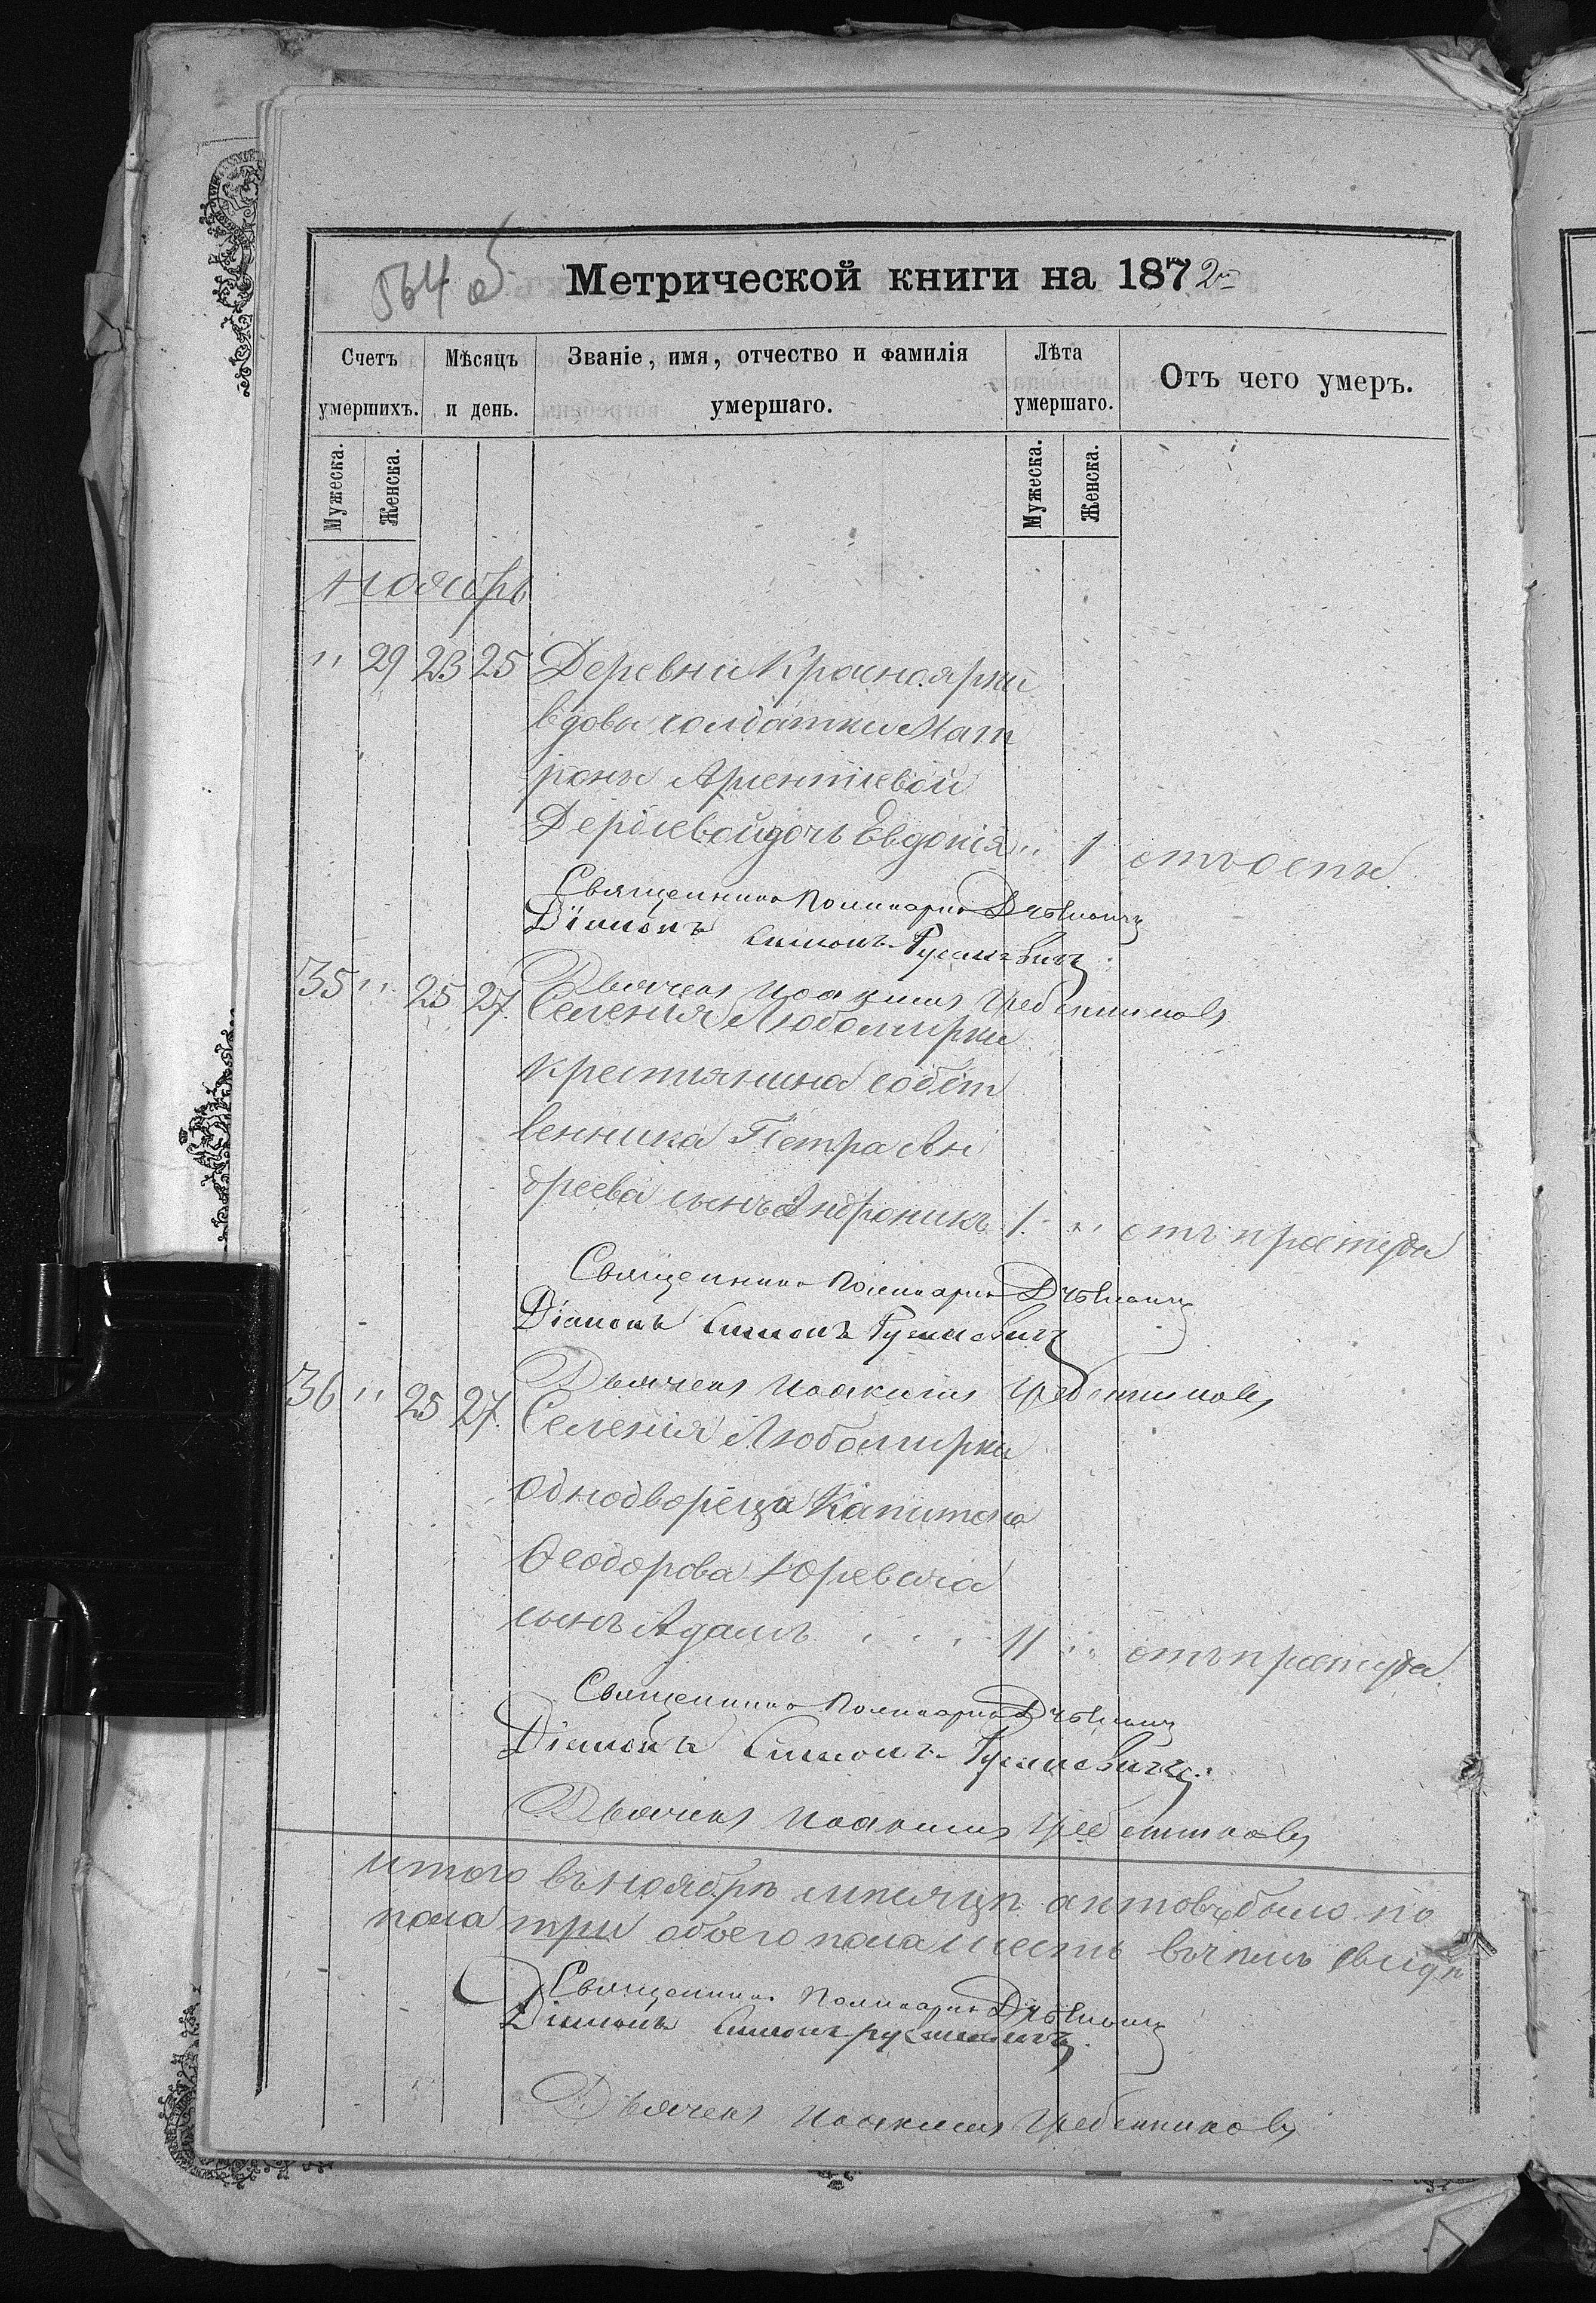 564 об
Метрической книги на 1872
Счетъ умершихъ.
Мѣсяцъ и день.
Званіе, имя, отчество и фамилія умершаго.
Лѣта умершаго.
Отъ чего умеръ.
Мужеска. Женска. Мужеска. Женска.
Ноябрь
" 29 23 25 Деревни Красноярки
вдовы солдатки Мат
роны Арентіевой
дочь Евдокія " 1 отъ оспы
Священникъ Поликарпъ
Діаконъ Симонъ
Дьячекъ Иоакимъ Гребенниковъ
35 " 25 27 Селенія Любомирки
крестьянина собст
венника Петра Ан
дреева сынъ Андроникъ 1 " отъ простуды
Священникъ Поликарпъ
Діаконъ Симонъ
Дьячекъ Иоакимъ Гребенниковъ
36 " 25 27 Селенія Любомирки
однодворца Капитона
Ѳеодорова Юревича
сынъ Адамъ . . . 11 " отъ простуды
Священникъ Поликарпъ
Діаконъ Симонъ
Дьячекъ Иоакимъ Гребенниковъ
Итого въ ноябрѣ мѣсяцѣ актовъ было по
пола три обоего пола шесть въ чемъ свидѣ
Священникъ Поликарпъ
Діаконъ Симонъ
Дьячекъ Иоакимъ Гребенниковъ